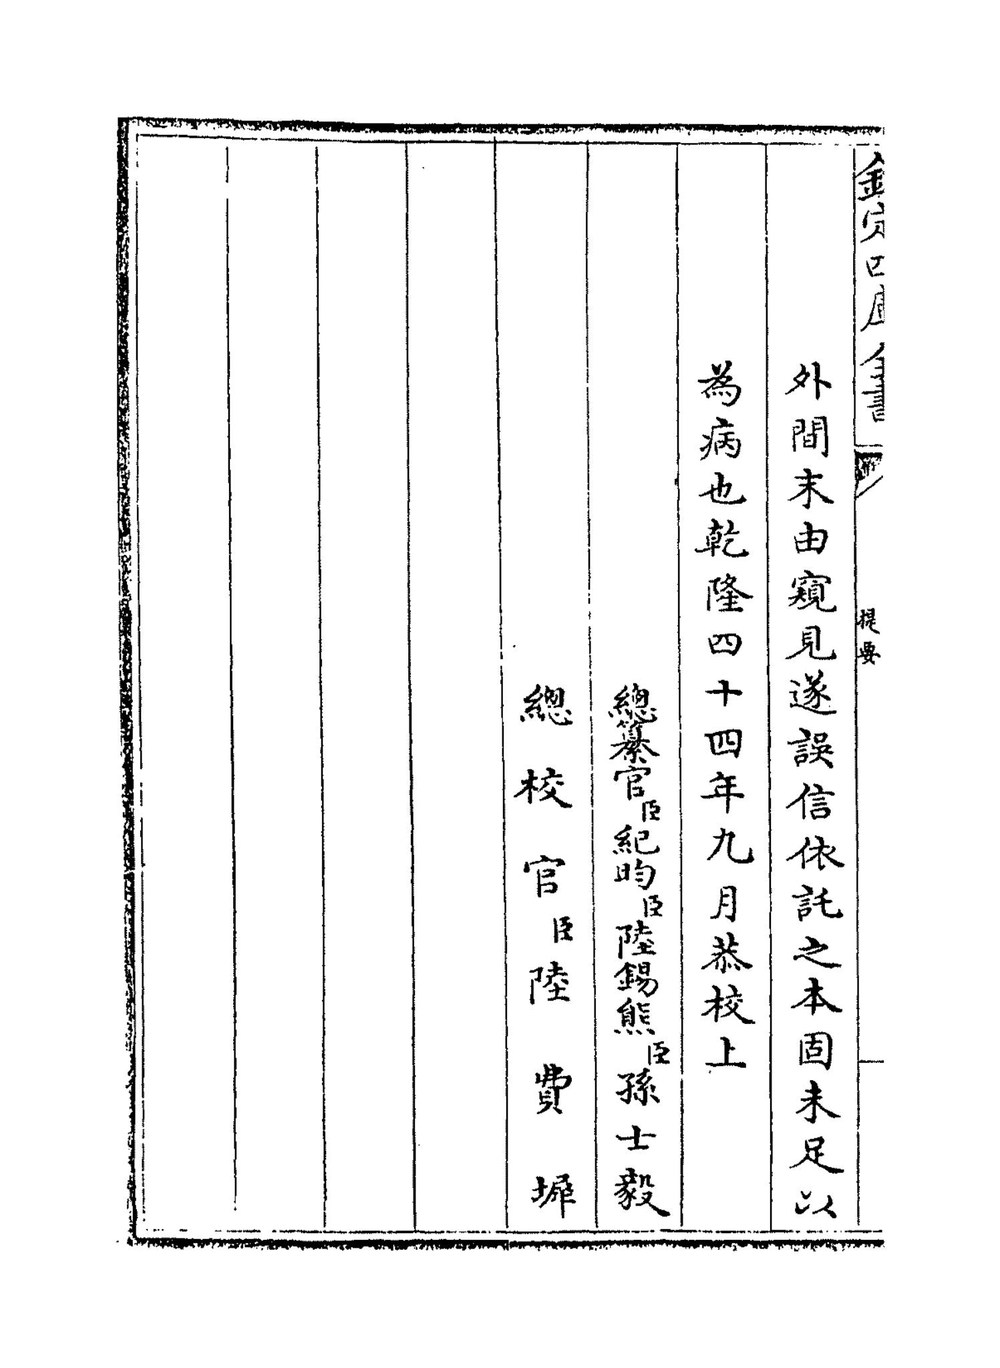 欽定四庫全書
提要
外間未由窺見遂誤信依託之本固未足以
為病也乾隆四十四年九月恭校上
總纂官臣紀昀臣陸錫熊臣孫士毅
總校官臣陸費墀